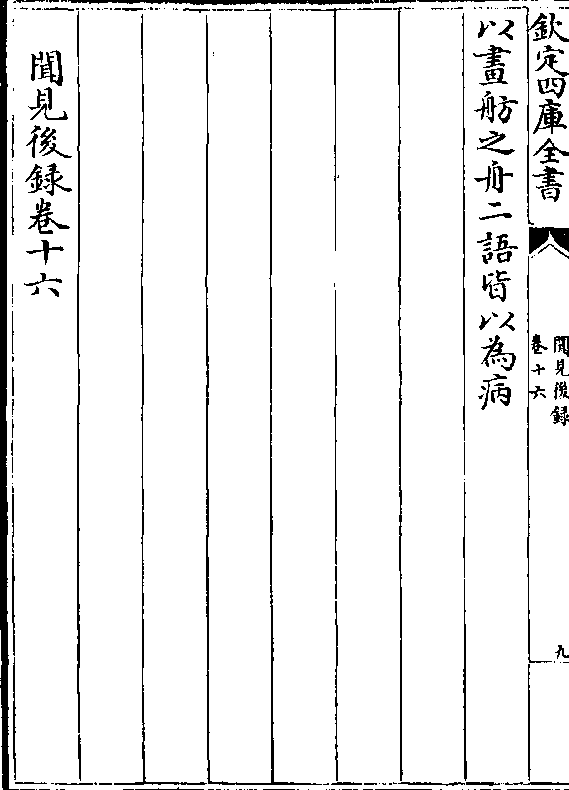 欽定四庫全書
聞見後録
卷十六
九
以畫舫之舟二語皆以為病
聞見後録卷十六